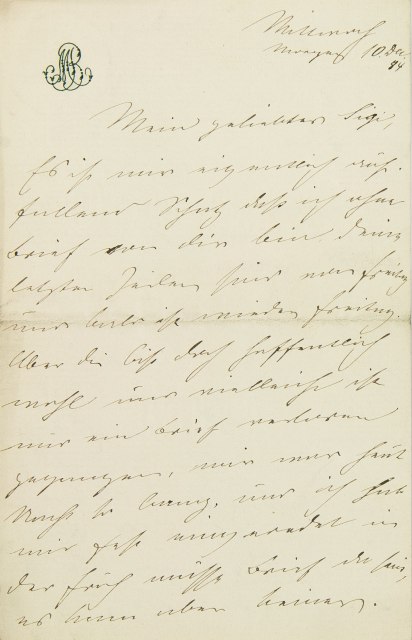 Mittwoch
Morgen 10. Dez.
84
Mein geliebter Sigi,
Es ist mir eigentlich auf-
fallend Schatz daß ich ohne
Brief von dir bin. Deine
letzten Zeilen sind von Freitag
und bald ist wieder Freitag.
Aber du bist doch hoffentlich
wohl und vielleicht ist
nur ein Brief verloren
gegangen, mir war heut
Nacht so bang, und ich hab
mir fest eingeredet in
der früh müsse Brief da sein,
es kam aber keiner.